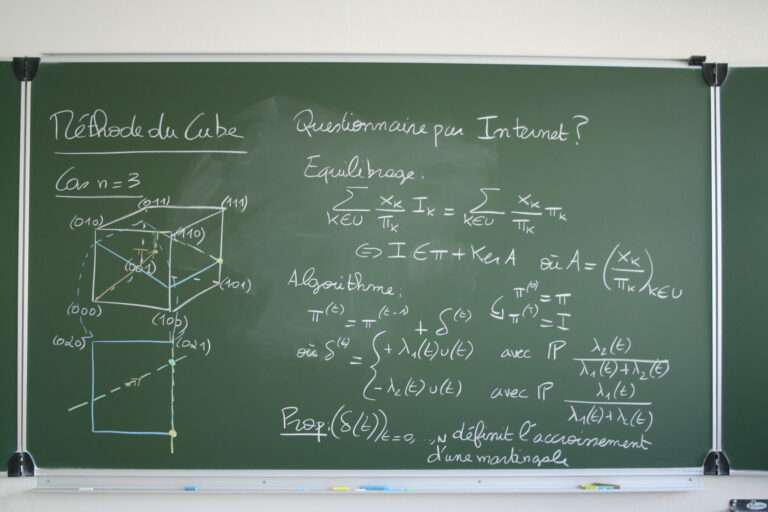 Méthode du Cube
Cas n=3
(011) (111)
(010) (110)
(001)
(101)
(000)
(100)
(020) (021)
π
Questionnaire par Internet?
Equilibrage:
∑_{k∈U} x_k/π_k I_k = ∑_{k∈U} x_k/π_k π_k
⇔ I ∈ π + Ker A où A = (x_k/π_k)_{k∈U}
Algorithme:
π^(0) = π
π^(t) = π^(t-1) + δ^(t)
π^(T) = I
où δ^(t) = { +λ₁(t)u(t) avec ℙ λ₂(t)/(λ₁(t)+λ₂(t))
-λ₂(t)u(t) avec ℙ λ₁(t)/(λ₁(t)+λ₂(t))
Prop: (δ(t))_{t=0,...,N} définit l'accroissement
d'une martingale